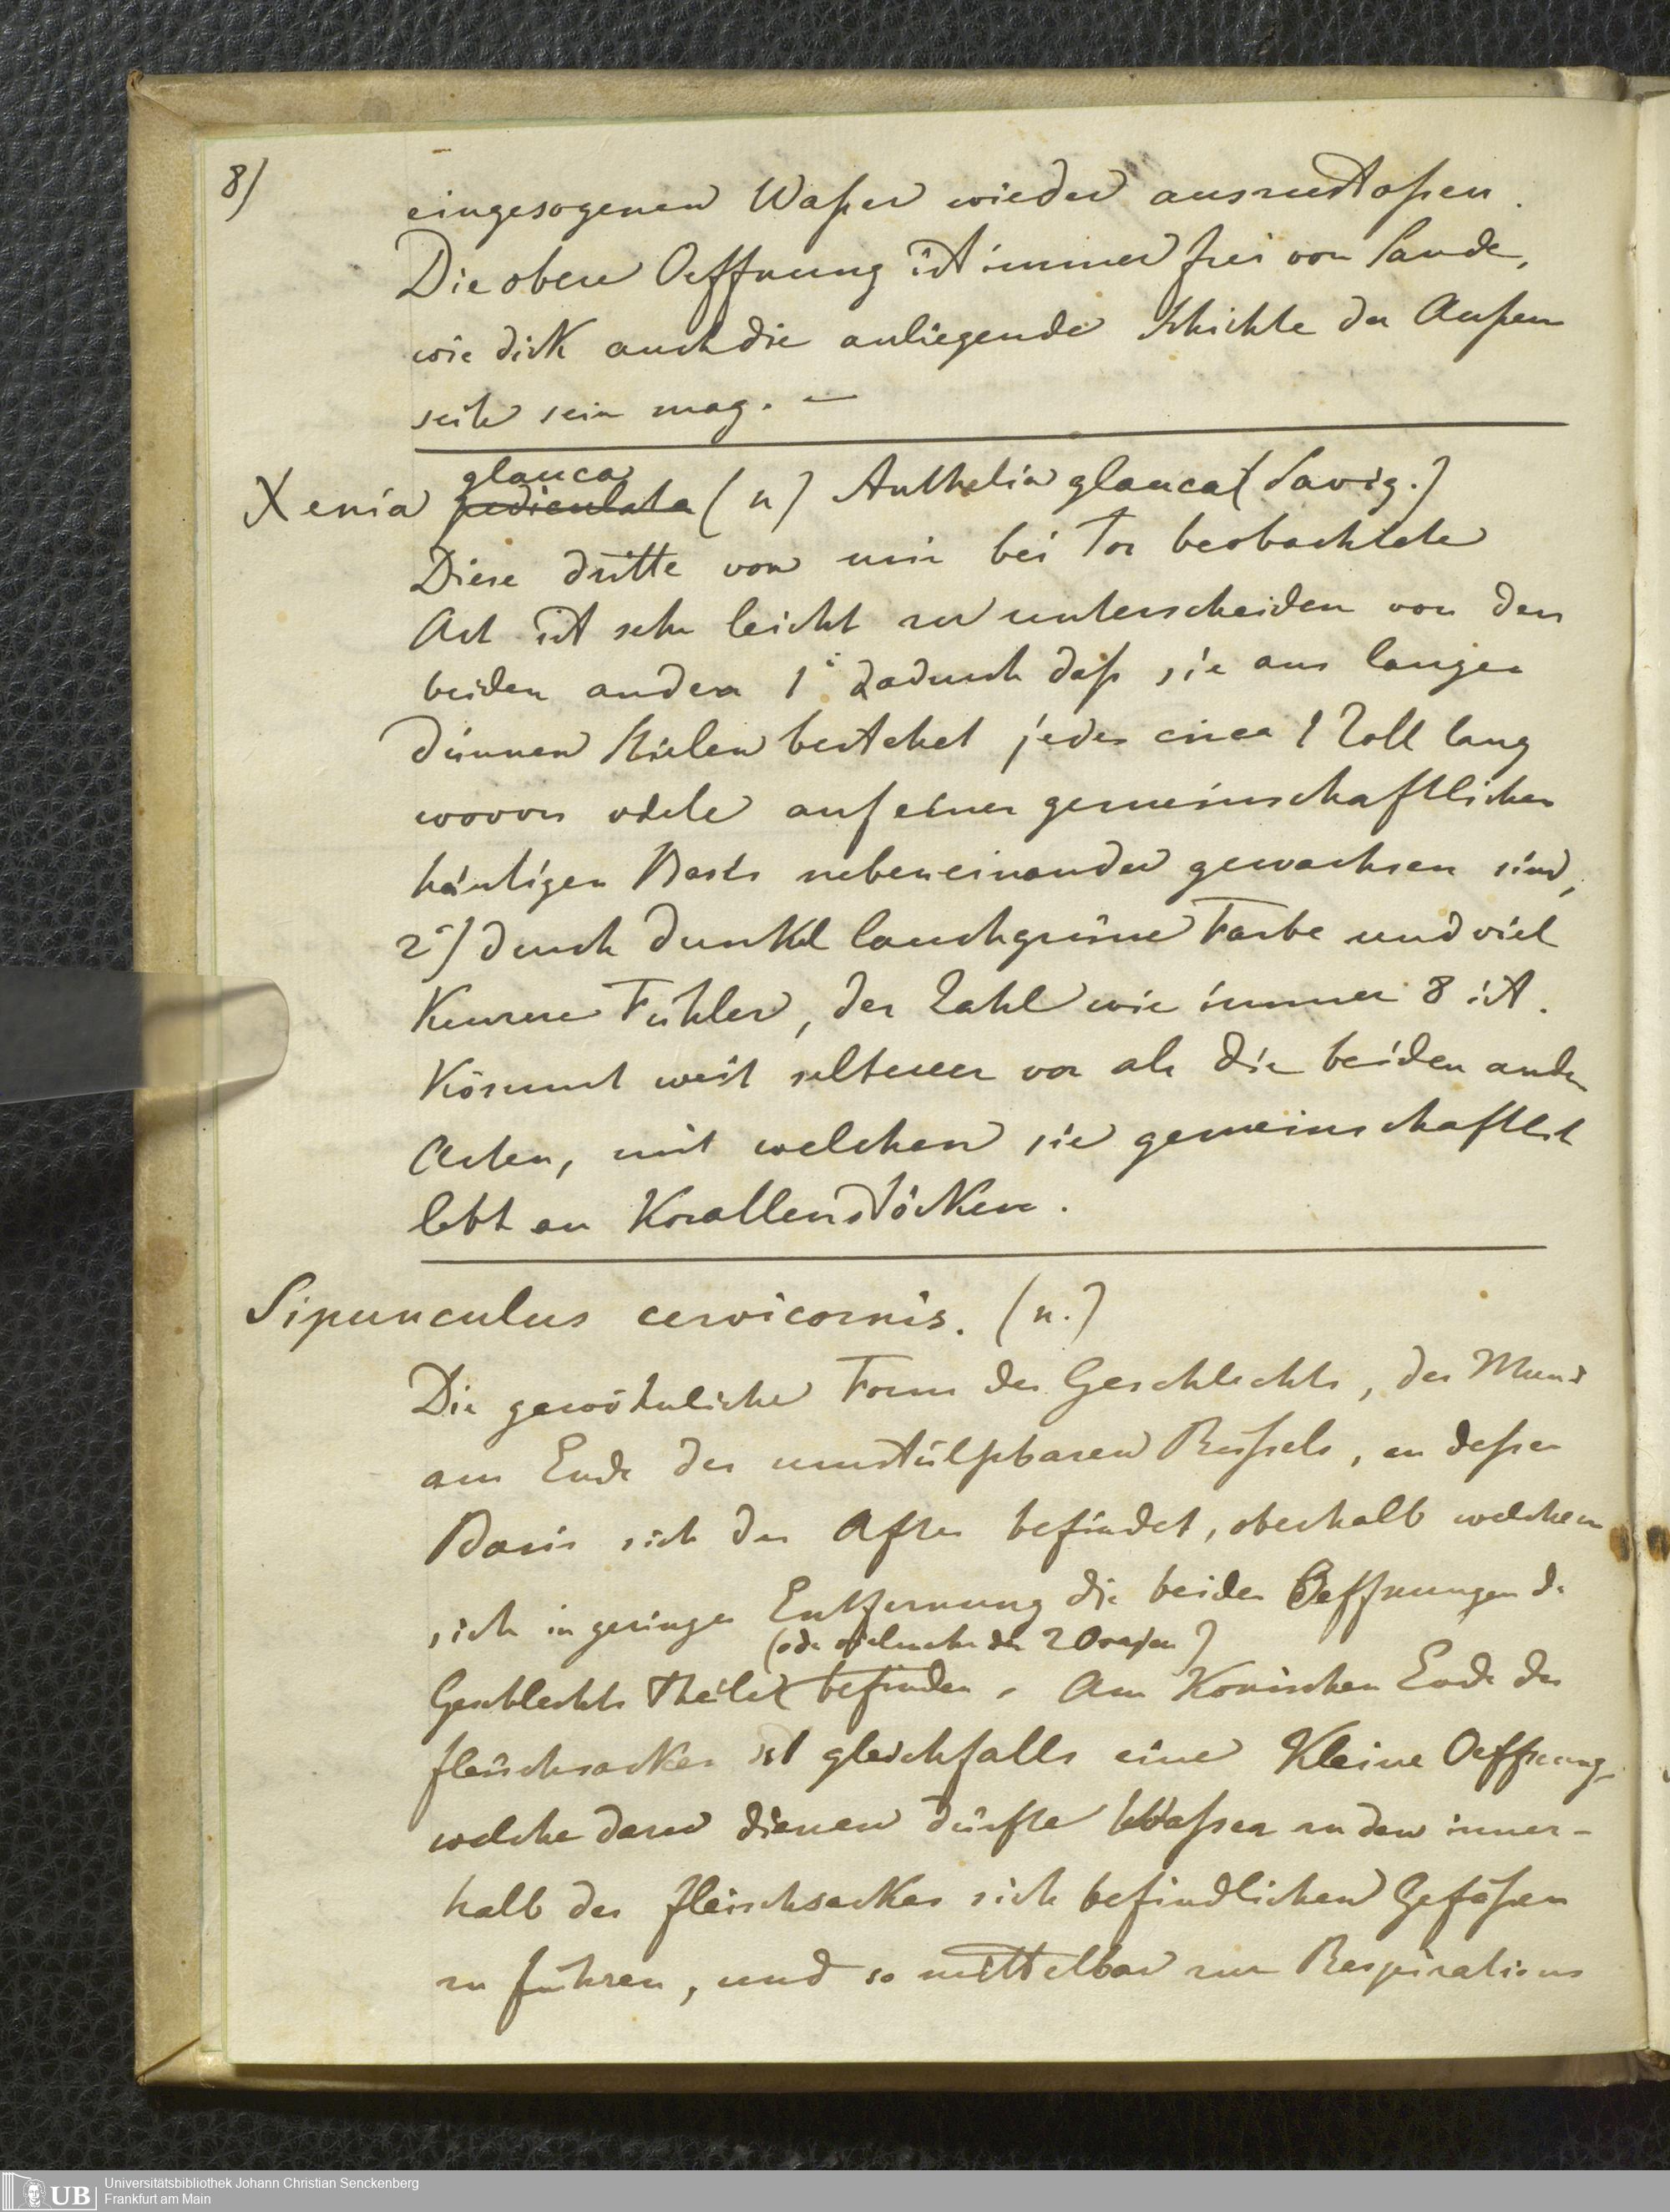 8)
eingesogenen Waßer wieder auszustoßen.
Die obere Oeffnung ist immer frei von Sande,
wie dick auch die anliegende Schichte der Außen
seite sein mag. —
glauca
Xenia pediculata (n) Anthelia glauca (Savig.)
Diese dritte von mir bei Tor beobachtete
Art ist sehr leicht zu unterscheiden von den
beiden andern 1° dadurch daß sie aus langen
dünnen Stielen bestehet jeder circa 1 Zoll lang
wovon viele auf einer gemeinschaftlichen
häutigen Basis nebeneinander gewachsen sind,
2°) durch dunkel lauchgrüne Farbe und viel
Kurzere Fühler, der Zahl wie immer 8 ist.
Kömmt weit seltener vor als die beiden andern
Arten, mit welchen sie gemeinschaftlich
lebt an Korallenstöcken.
Sipunculus cervicornis. (n.)
Die gewöhnliche Form des Geschlechts, der Mund
am Ende des umstülpbaren Rüßels, an deßen
Basis sich der After befindet, oberhalb welchem
sich in geringer Entfernung die beiden Oeffnungen der
(oder vielmehr der 2 Ovarien)
Geschlechts Theile befinden. Am Konischen Ende des
fleischsackes ist gleichfalls eine Kleine Oeffnung,
welche dazu dienen dürfte Waßer zu den inner-
halb des fleischsackes sich befindlichen Gefäßen
zu führen, und so mittelbar zur Respirations
Universitätsbibliothek Johann Christian Senckenberg
UB Frankfurt am Main